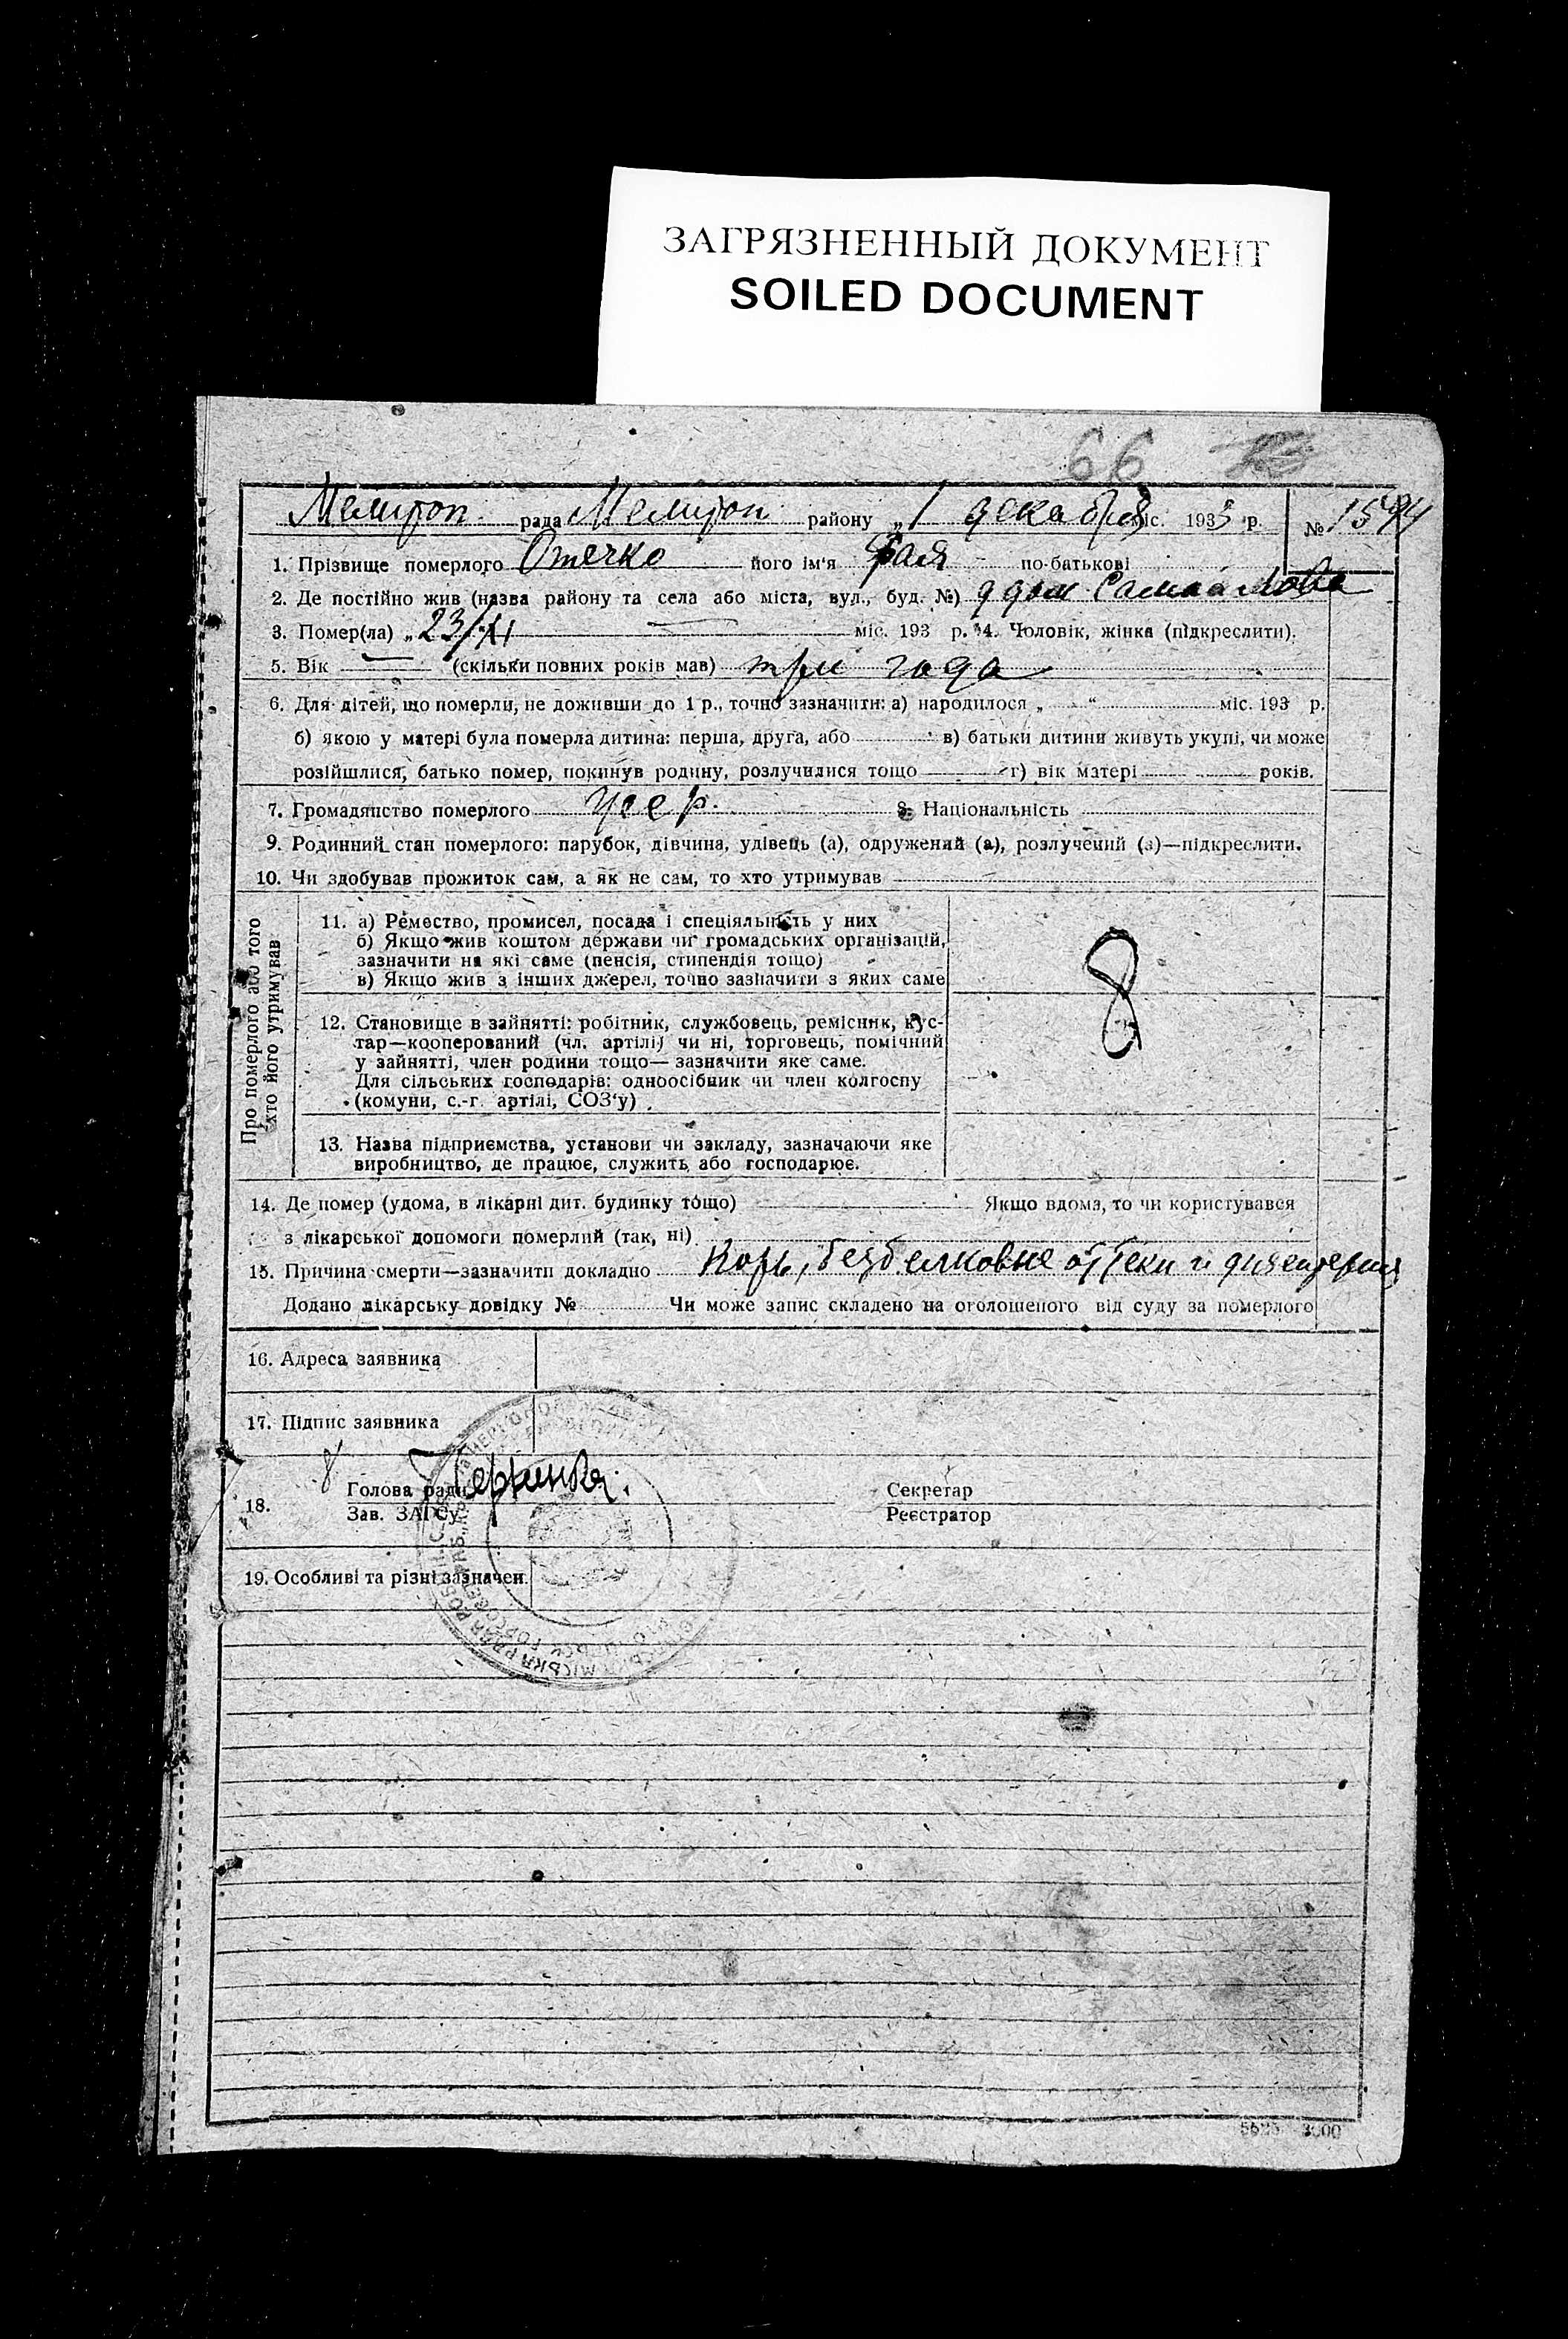 ЗАГРЯЗНЕННЫЙ ДОКУМЕНТ
SOILED DOCUMENT
66
Мелитоп. рада Мелитоп. району „1 декабря міс. 1933 р. № 1594
1. Прізвище померлого Отечко його ім'я Фаля по-батькові
2. Де постійно жив (назва району та села або міста, вул., буд. №) д дом Самойлова
3. Помер(ла) „23/XI міс. 193 р. 4. Чоловік, жінка (підкреслити).
5. Вік (скільки повних років мав) три года
6. Для дітей, що померли, не доживши до 1 р., точно зазначити: а) народилося „ “ міс. 193 р.
б) якою у матері була померла дитина: перша, друга, або в) батьки дитини живуть укупі, чи може
розійшлися, батько помер, покинув родину, розлучилися тощо г) вік матері років.
7. Громадянство померлого усср. 8. Національність
9. Родинний стан померлого: парубок, дівчина, удівець (а), одружений (а), розлучений (а)—підкреслити.
10. Чи здобував прожиток сам, а як не сам, то хто утримував
Про померлого або того
хто його утримував
11. а) Ремество, промисел, посада і спеціяльність у них
б) Якщо жив коштом держави чи громадських організацій,
зазначити на які саме (пенсія, стипендія тощо)
в) Якщо жив з інших джерел, точно зазначити з яких саме
8
12. Становище в зайнятті: робітник, службовець, ремісник, кус-
тар—кооперований (чл. артілі) чи ні, торговець, помічний
у зайнятті, член родини тощо— зазначити яке саме.
Для сільських господарів: одноосібник чи член колгоспу
(комуни, с.-г. артілі, СОЗ'у)
13. Назва підприємства, установи чи закладу, зазначаючи яке
виробництво, де працює, служить, або господарює.
14. Де помер (удома, в лікарні дит. будинку тощо) Якщо вдома, то чи користувався
з лікарської допомоги померлий (так, ні)
15. Причина смерти—зазначити докладно Корь, безбелковые оттеки и дизентерия
Додано лікарську довідку № Чи може запис складено на оголошеного від суду за померлого
16. Адреса заявника
17. Підпис заявника
18. Голова ради Секретар
Зав. ЗАГСу Реєстратор
19. Особливі та різні зазначен.
3000